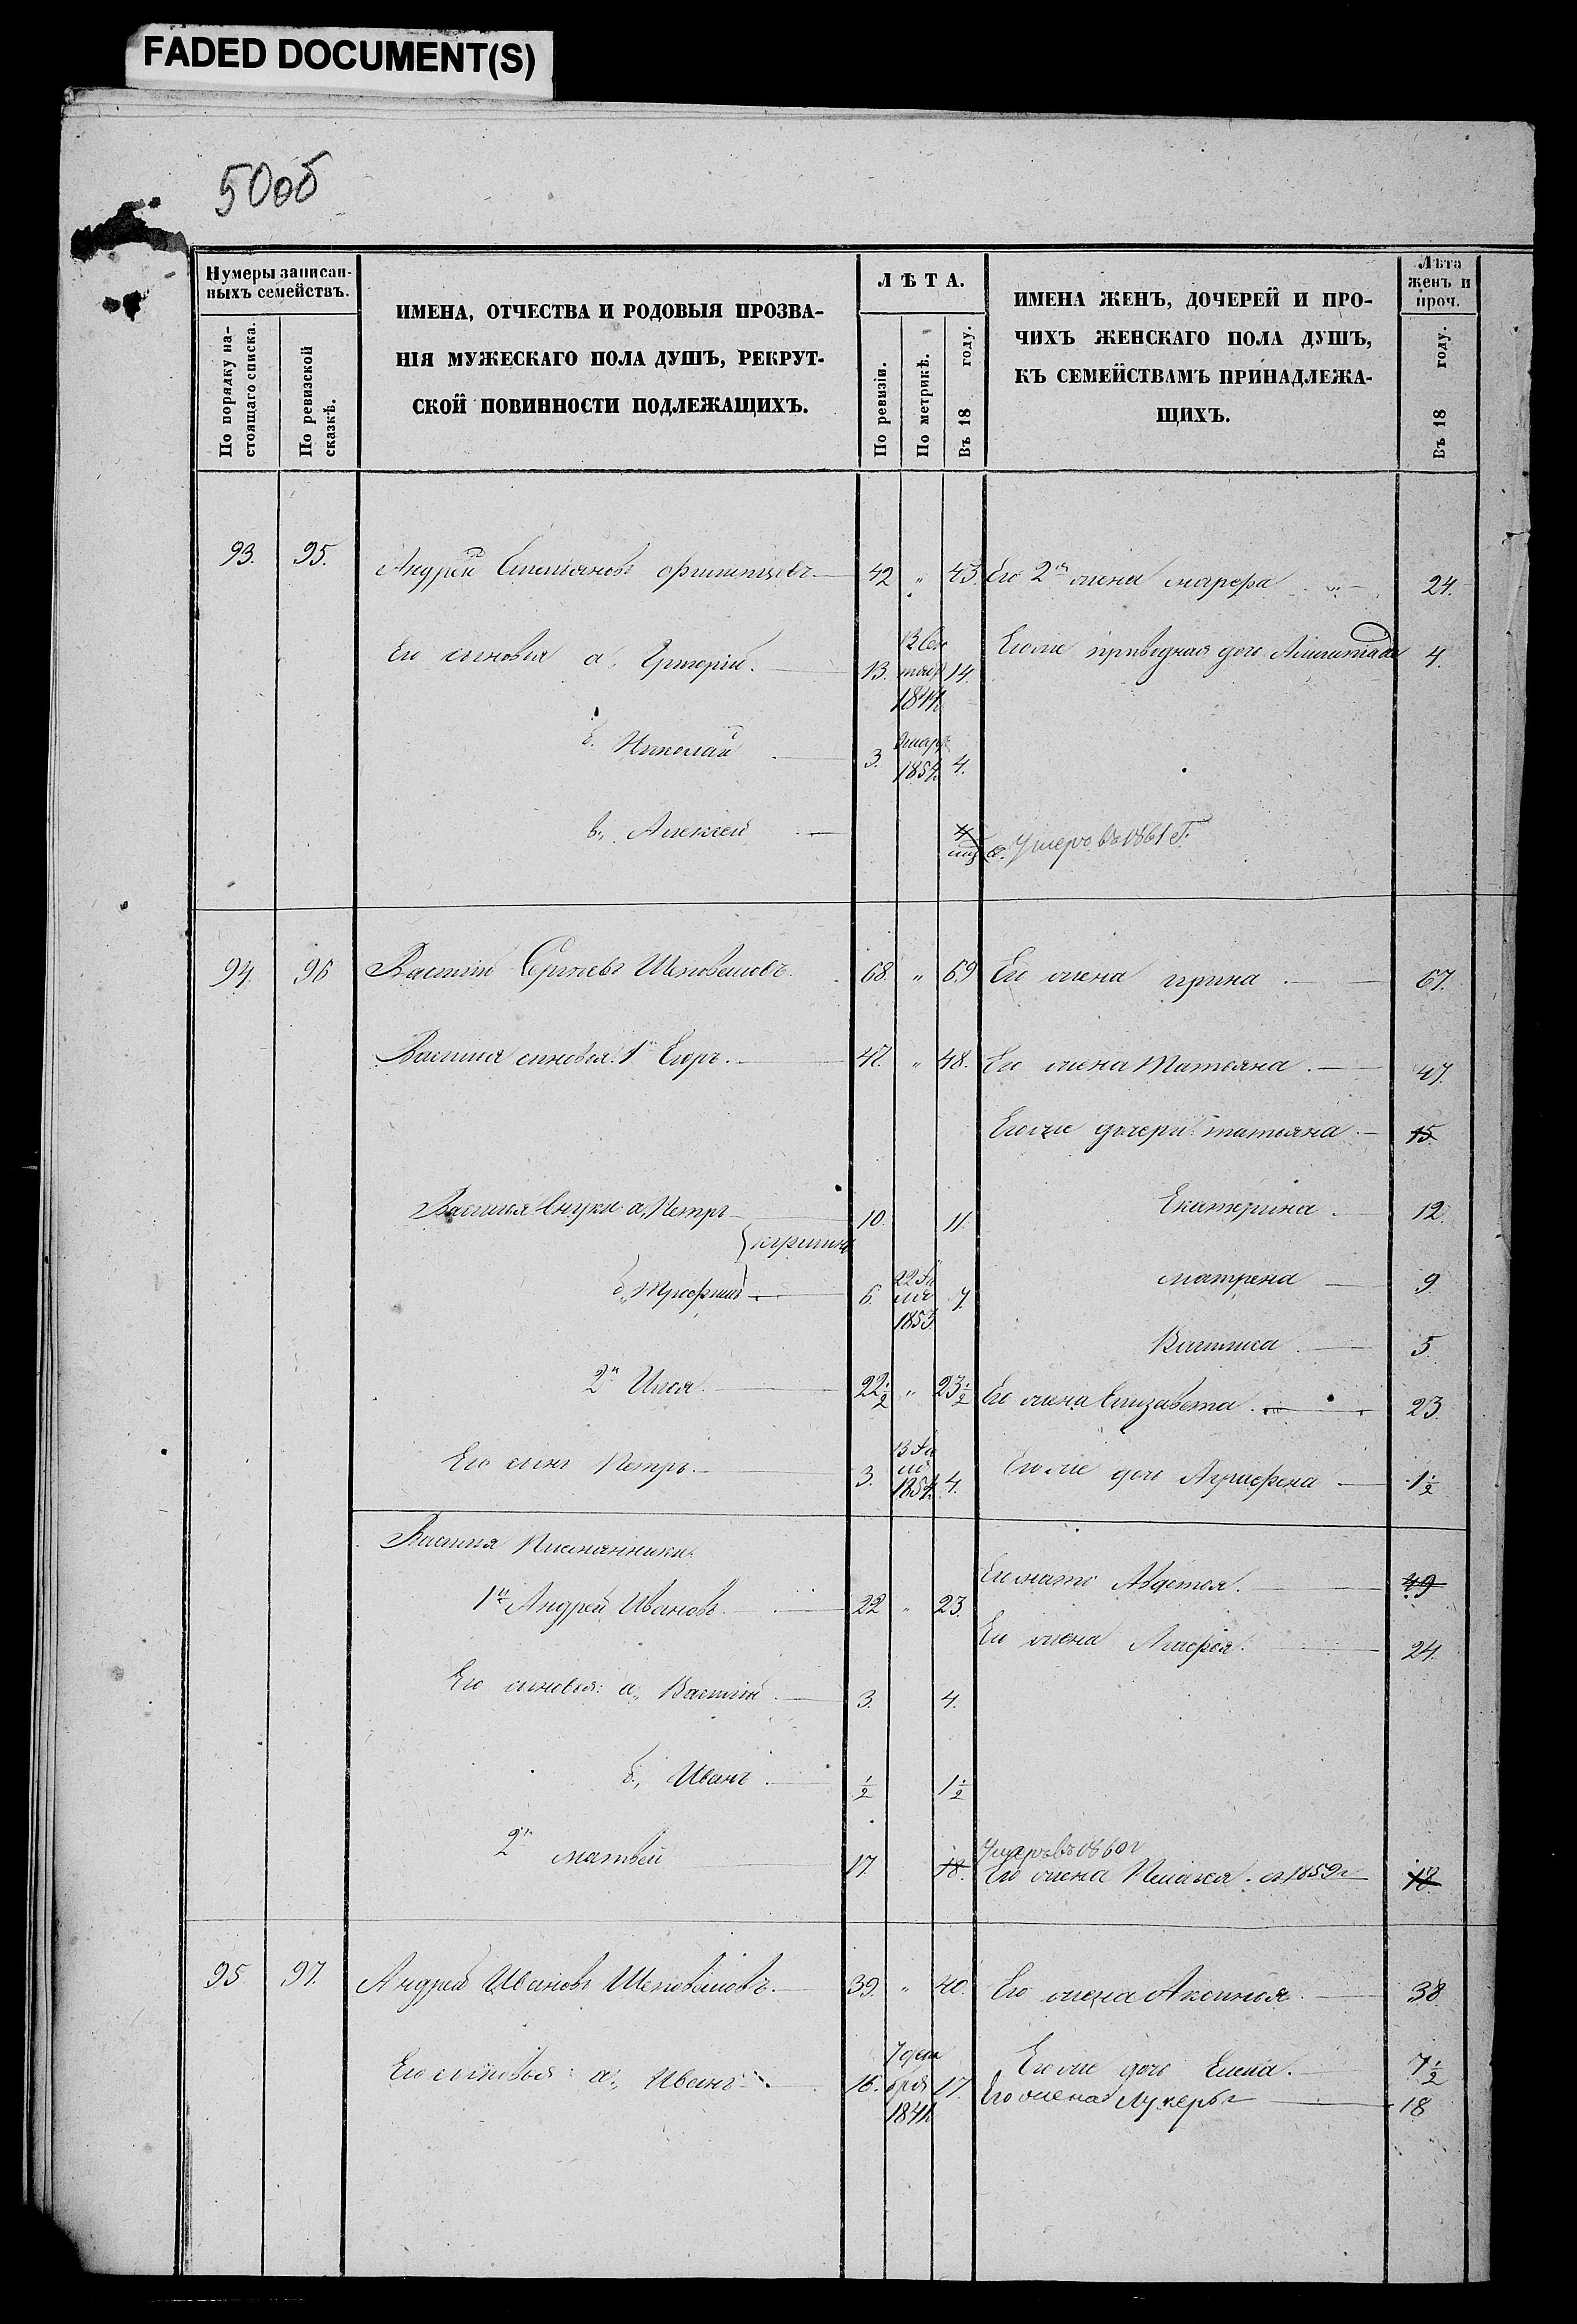 FADED DOCUMENT(S)
50об
Нумеры записан-
ныхъ семействъ.
По порядку на-
стоящаго списка.
По ревизской
сказкѣ.
ИМЕНА, ОТЧЕСТВА И РОДОВЫЯ ПРОЗВА-
НІЯ МУЖЕСКАГО ПОЛА ДУШЪ, РЕКРУТ-
СКОЙ ПОВИННОСТИ ПОДЛЕЖАЩИХЪ.
ЛѢТА.
По ревизіи.
По метрикѣ.
Въ 18 году.
ИМЕНА ЖЕНЪ, ДОЧЕРЕЙ И ПРО-
ЧИХЪ ЖЕНСКАГО ПОЛА ДУШЪ,
КЪ СЕМЕЙСТВАМЪ ПРИНАДЛЕЖА-
ЩИХЪ.
Лѣта
женъ и
проч.
Въ 18 году.
93. 95. Андрей 42 " 43. Его 2я жена марфа 24.
Его сыновья а, Григорій. 13. 13 Сен
тяб 14. Егоже приводная дочь 4.
1844
б. Николай 3. 1854 4.
в., Алексей 4 Умеръ въ 1861 Г.
94. 96 Василій Сергѣевъ Шеповаловъ. 68. " 69 Его жена ирина 67.
Василия сыновья: 1й Егоръ. 47. " 48. Его жена Татьяна. 47.
Егоже дочери: татьяна 15.
Василия Внуки а, Петръ 10. 11. Екатерина. 12.
б, Трофимъ 6. 22
1853 7. матрена 9
Василиса 5.
2й Илья. 22½ " 23½ Его жена Елизавета. 23
Его сынъ Петръ. 3. 13
1854. 4. Егоже дочь Агрифена 1½
Василия Племянники:
1й Андрей Ивановъ. 22 " 23. Его мать Авдотья. 49
Его жена Агафья. 24.
Его сыновья: а,, Василій 3. 4.
б., Иванъ. ½ 1½
2й матвей 17. 18. Умеръ въ 1860 г
Его жена Пелагея. 1859 г 18.
95. 97. Андрей Ивановъ Шеповаловъ. 39. " 40. Его жена Аксинья. 38.
Его сыновья: а., Иванъ 16. 7 дека
бря 17.
1841 Егоже дочь Елена. 7½
Его жена Лукерья 18